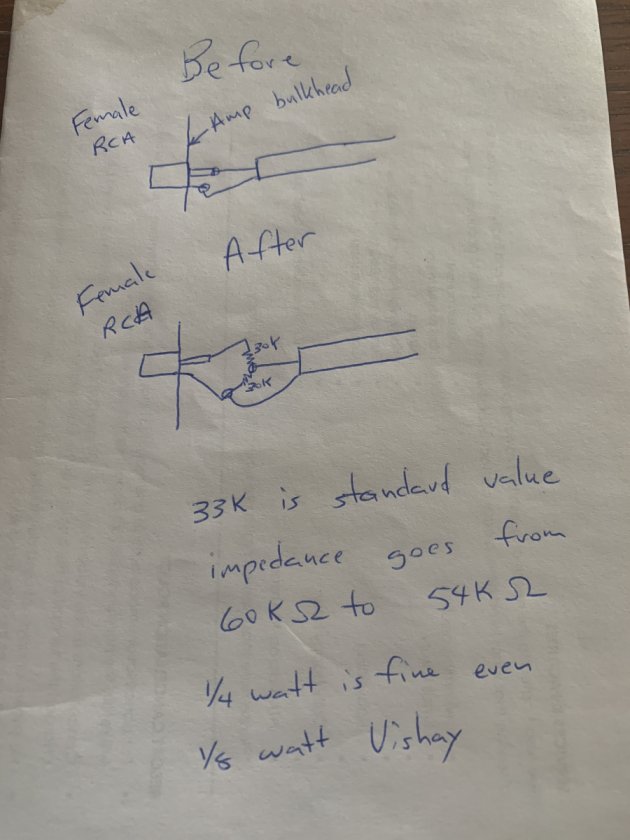 Before
Female
RCA
Amp bulkhead
After
Female
RCA
30K
30K
33K is standard value
impedance goes from
60KΩ to 54KΩ
1/4 watt is fine even
1/8 watt Vishay